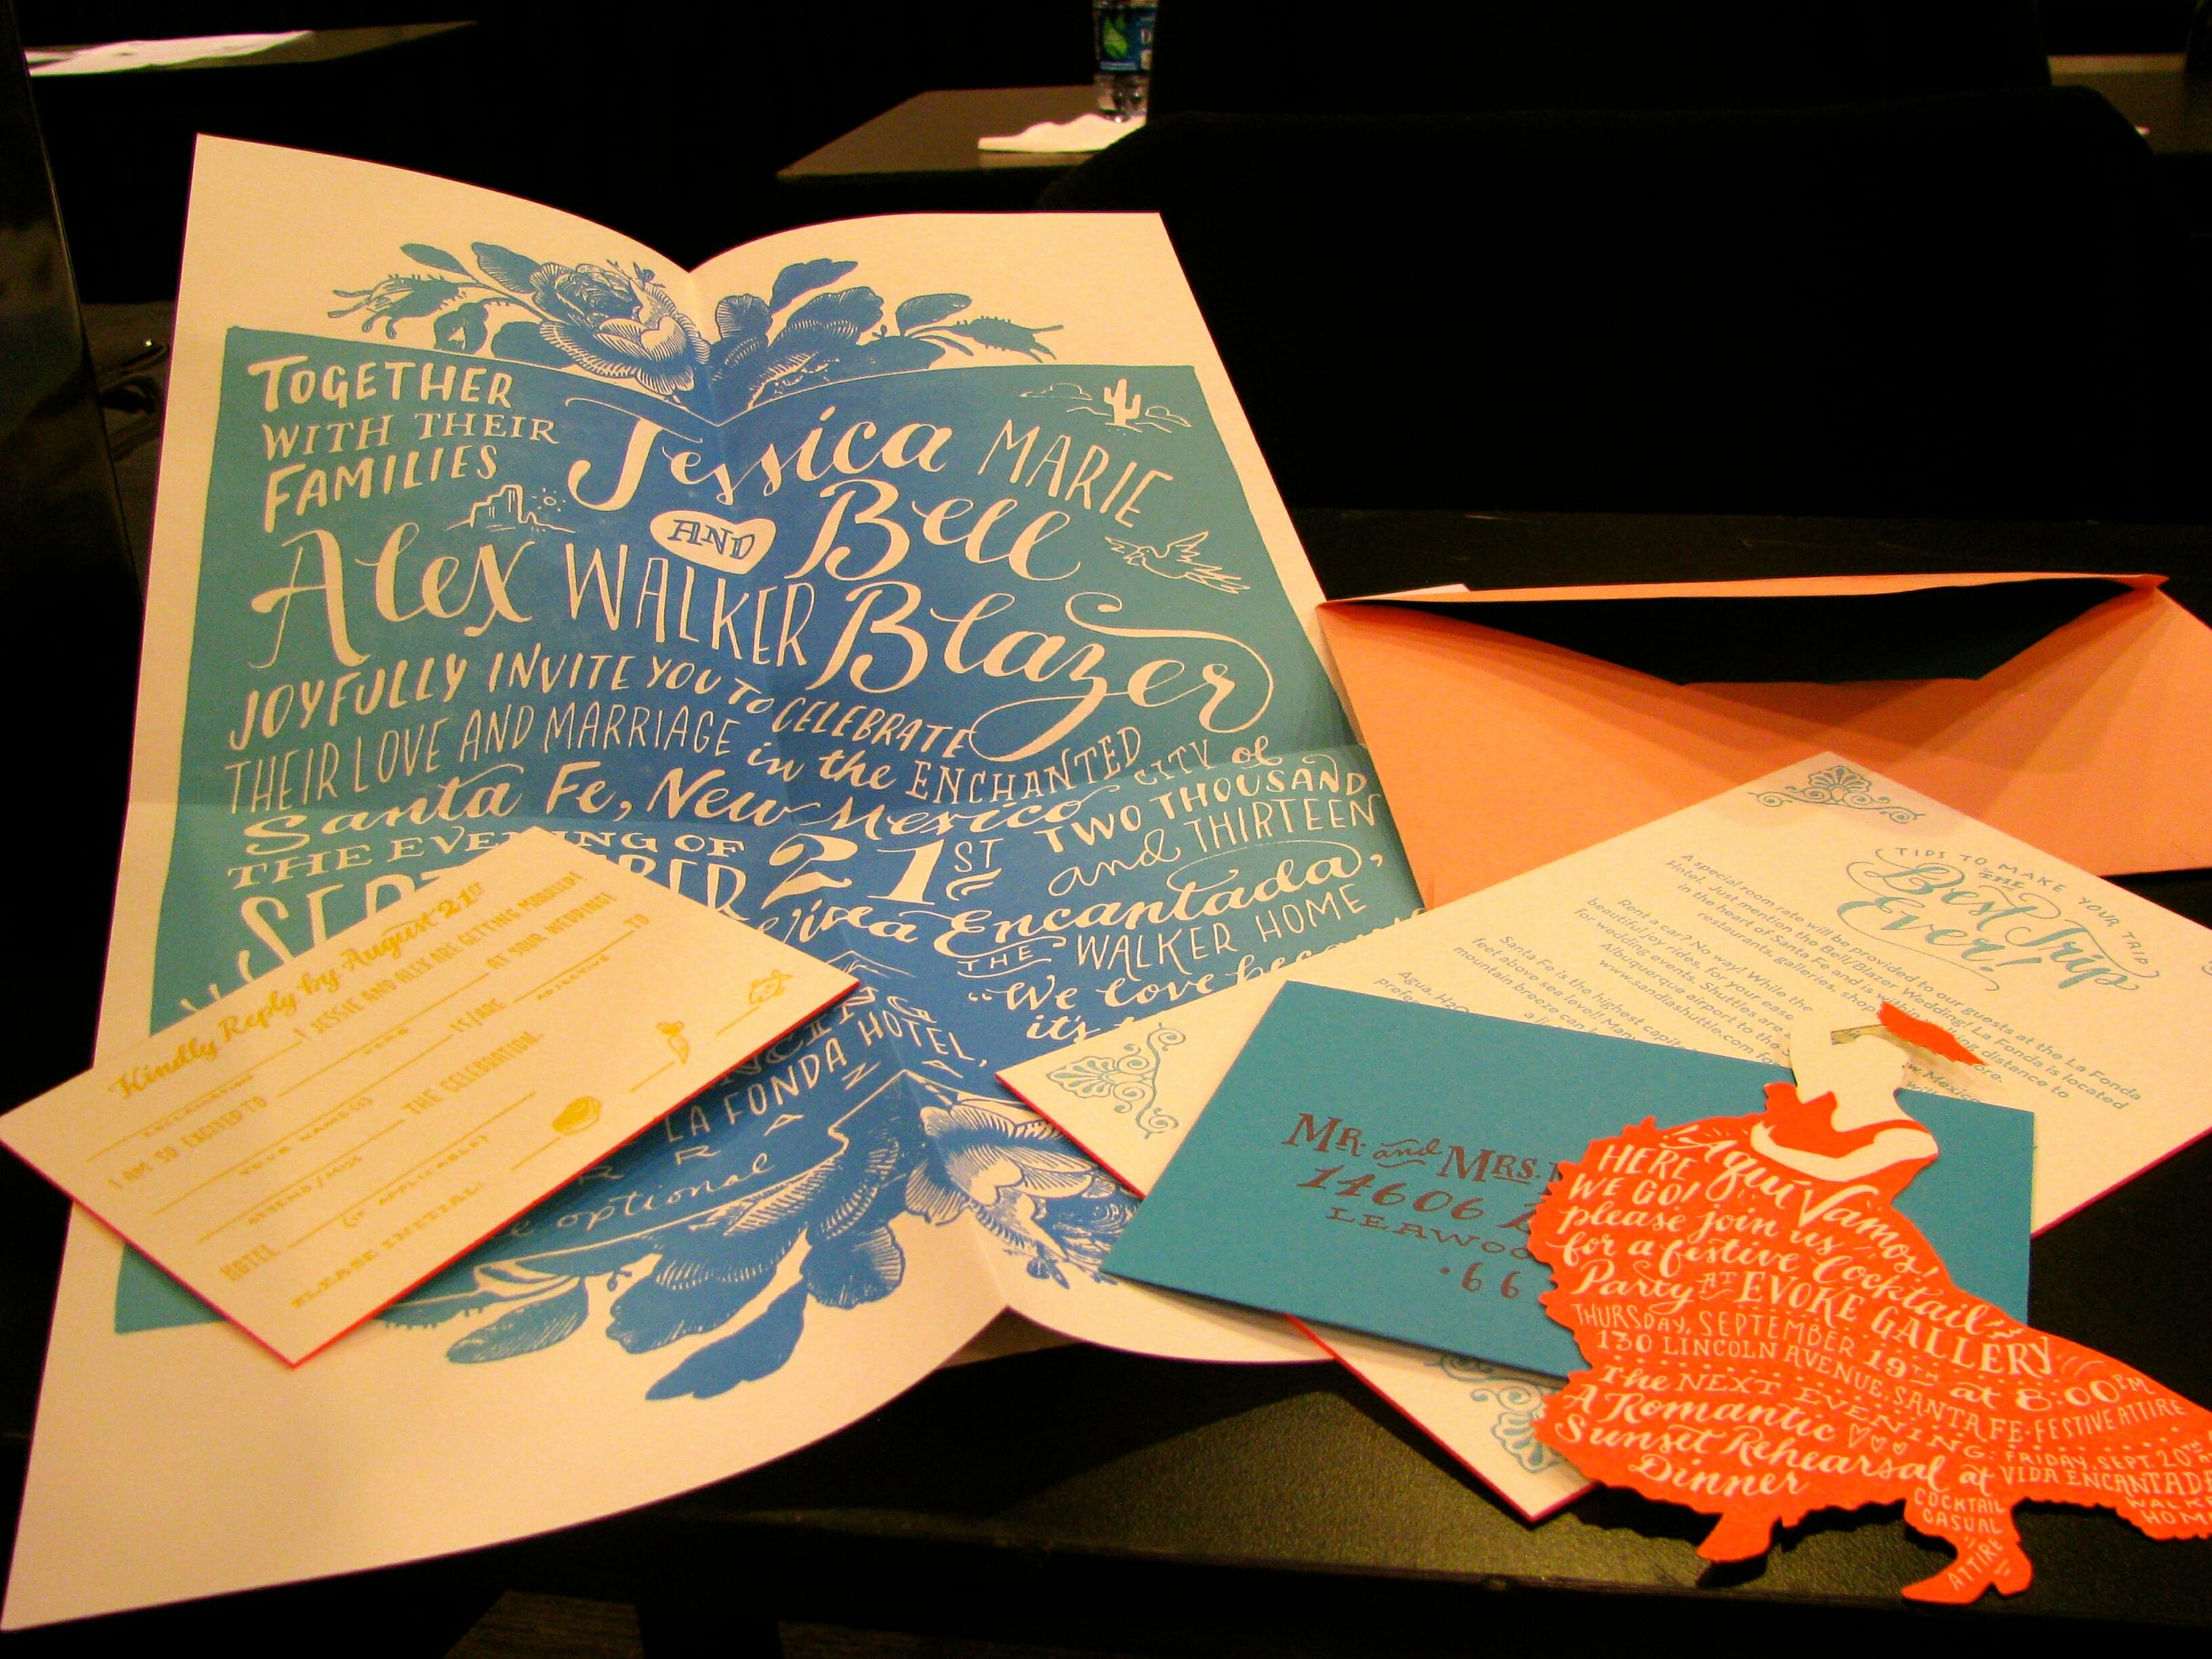 TOGETHER
WITH THEIR
FAMILIES
Jessica MARIE
AND Bell
Alex WALKER Blazer
JOYFULLY INVITE YOU TO CELEBRATE
THEIR LOVE AND MARRIAGE in the ENCHANTED CITY of
Santa Fe, New Mexico
THE EVENING OF
21ST TWO THOUSAND
and THIRTEEN
Encantada,
THE WALKER HOME
"We love
it's
LA FONDA HOTEL,
optional
Kindly Reply by August 21ST
! JESSIE AND ALEX ARE GETTING MARRIED!
EXCLAMATION
I AM SO EXCITED TO AT YOUR WEDDING!
VERB
IS/ARE TO
YOUR NAME(S) ADJECTIVE
THE CELEBRATION.
ATTEND / MISS
(IF APPLICABLE)
HOTEL
PLEASE INITIAL:
TIPS TO MAKE YOUR TRIP
THE
Best Trip
Ever!
A special room rate will be provided to our guests at the La Fonda
Hotel. Just mention the Bell/Blazer Wedding! La Fonda is located
in the heart of Santa Fe and is within walking distance to
restaurants, galleries, shop
Rent a car? No way! While the
beautiful joy rides, for your ease
wedding events. Shuttles are
Albuquerque airport to the
www.sandiashuttle.com fo
Santa Fe is the highest capit
feet above sea level! Many
mountain breeze can
Agua, H2O
prefe
MR. and MRS.
14606
LEAWOO
.66
Aquí Vamos!
HERE
WE GO!
please join us
for a festive Cocktail
Party AT EVOKE GALLERY
THURSDAY, SEPTEMBER 19TH at 8:00PM
130 LINCOLN AVENUE, SANTA FE · FESTIVE ATTIRE
The NEXT EVENING: FRIDAY, SEPT 20TH
A Romantic
Sunset Rehearsal at VIDA ENCANTADA
Dinner
HOM
COCKTAIL
CASUAL
ATTIRE